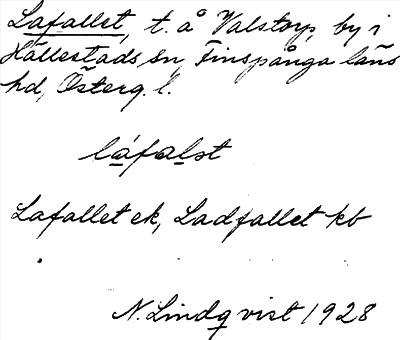 Lafallet, t. å Valstorp, by i
Hällestads sn, Finspånga läns
hd, Österg. l.
láfalst
Lafallet ek, Ladfallet kb
N. Lindqvist 1928